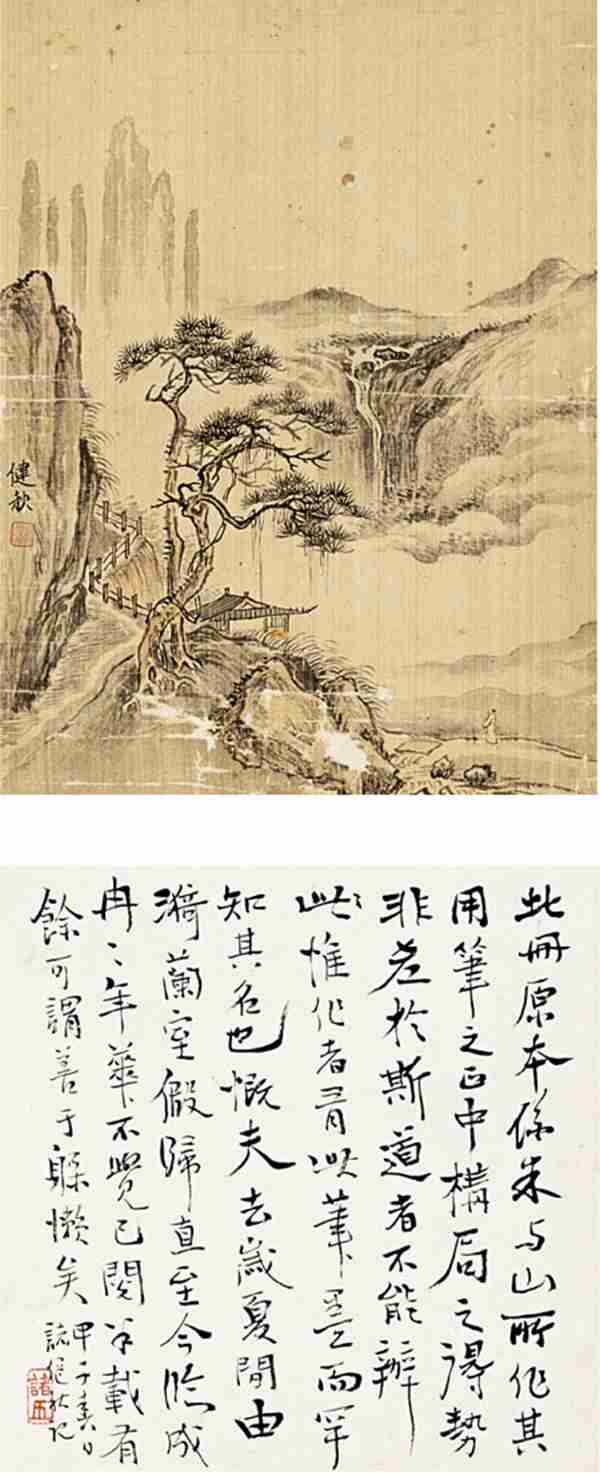 健秋
此冊原本係朱与山所作其
用筆之正中構局之得勢
非老於斯道者不能辦
此惟作者有此筆墨而罕
知其名也慨夫去歲夏間由
漪蘭室假歸直至今臨成
冉〻年華不覺已閱半載有
餘可謂善于躲懶矣
甲子春日
諸健秋記
諸五